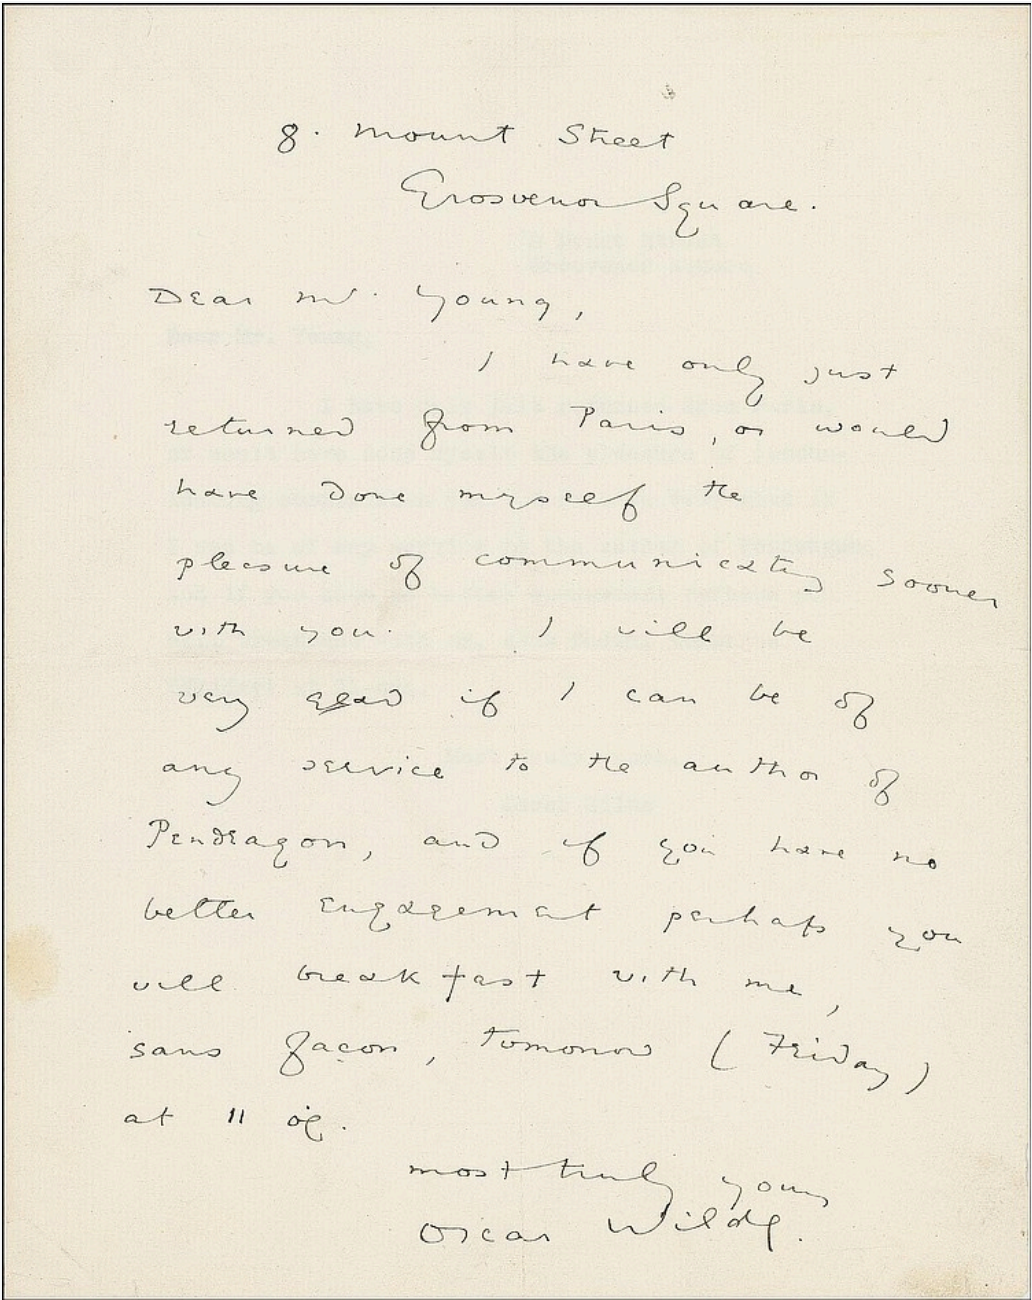 8. Mount Street
Grosvenor Square.
Dear Mr. Young,
I have only just
returned from Paris, or would
have done myself the
pleasure of communicating sooner
with you. I will be
very glad if I can be of
any service to the author of
Pendragon, and if you have no
better engagement perhaps you
will breakfast with me,
sans façon, tomorrow (Friday)
at 11 o'c.
most truly yours
Oscar Wilde.